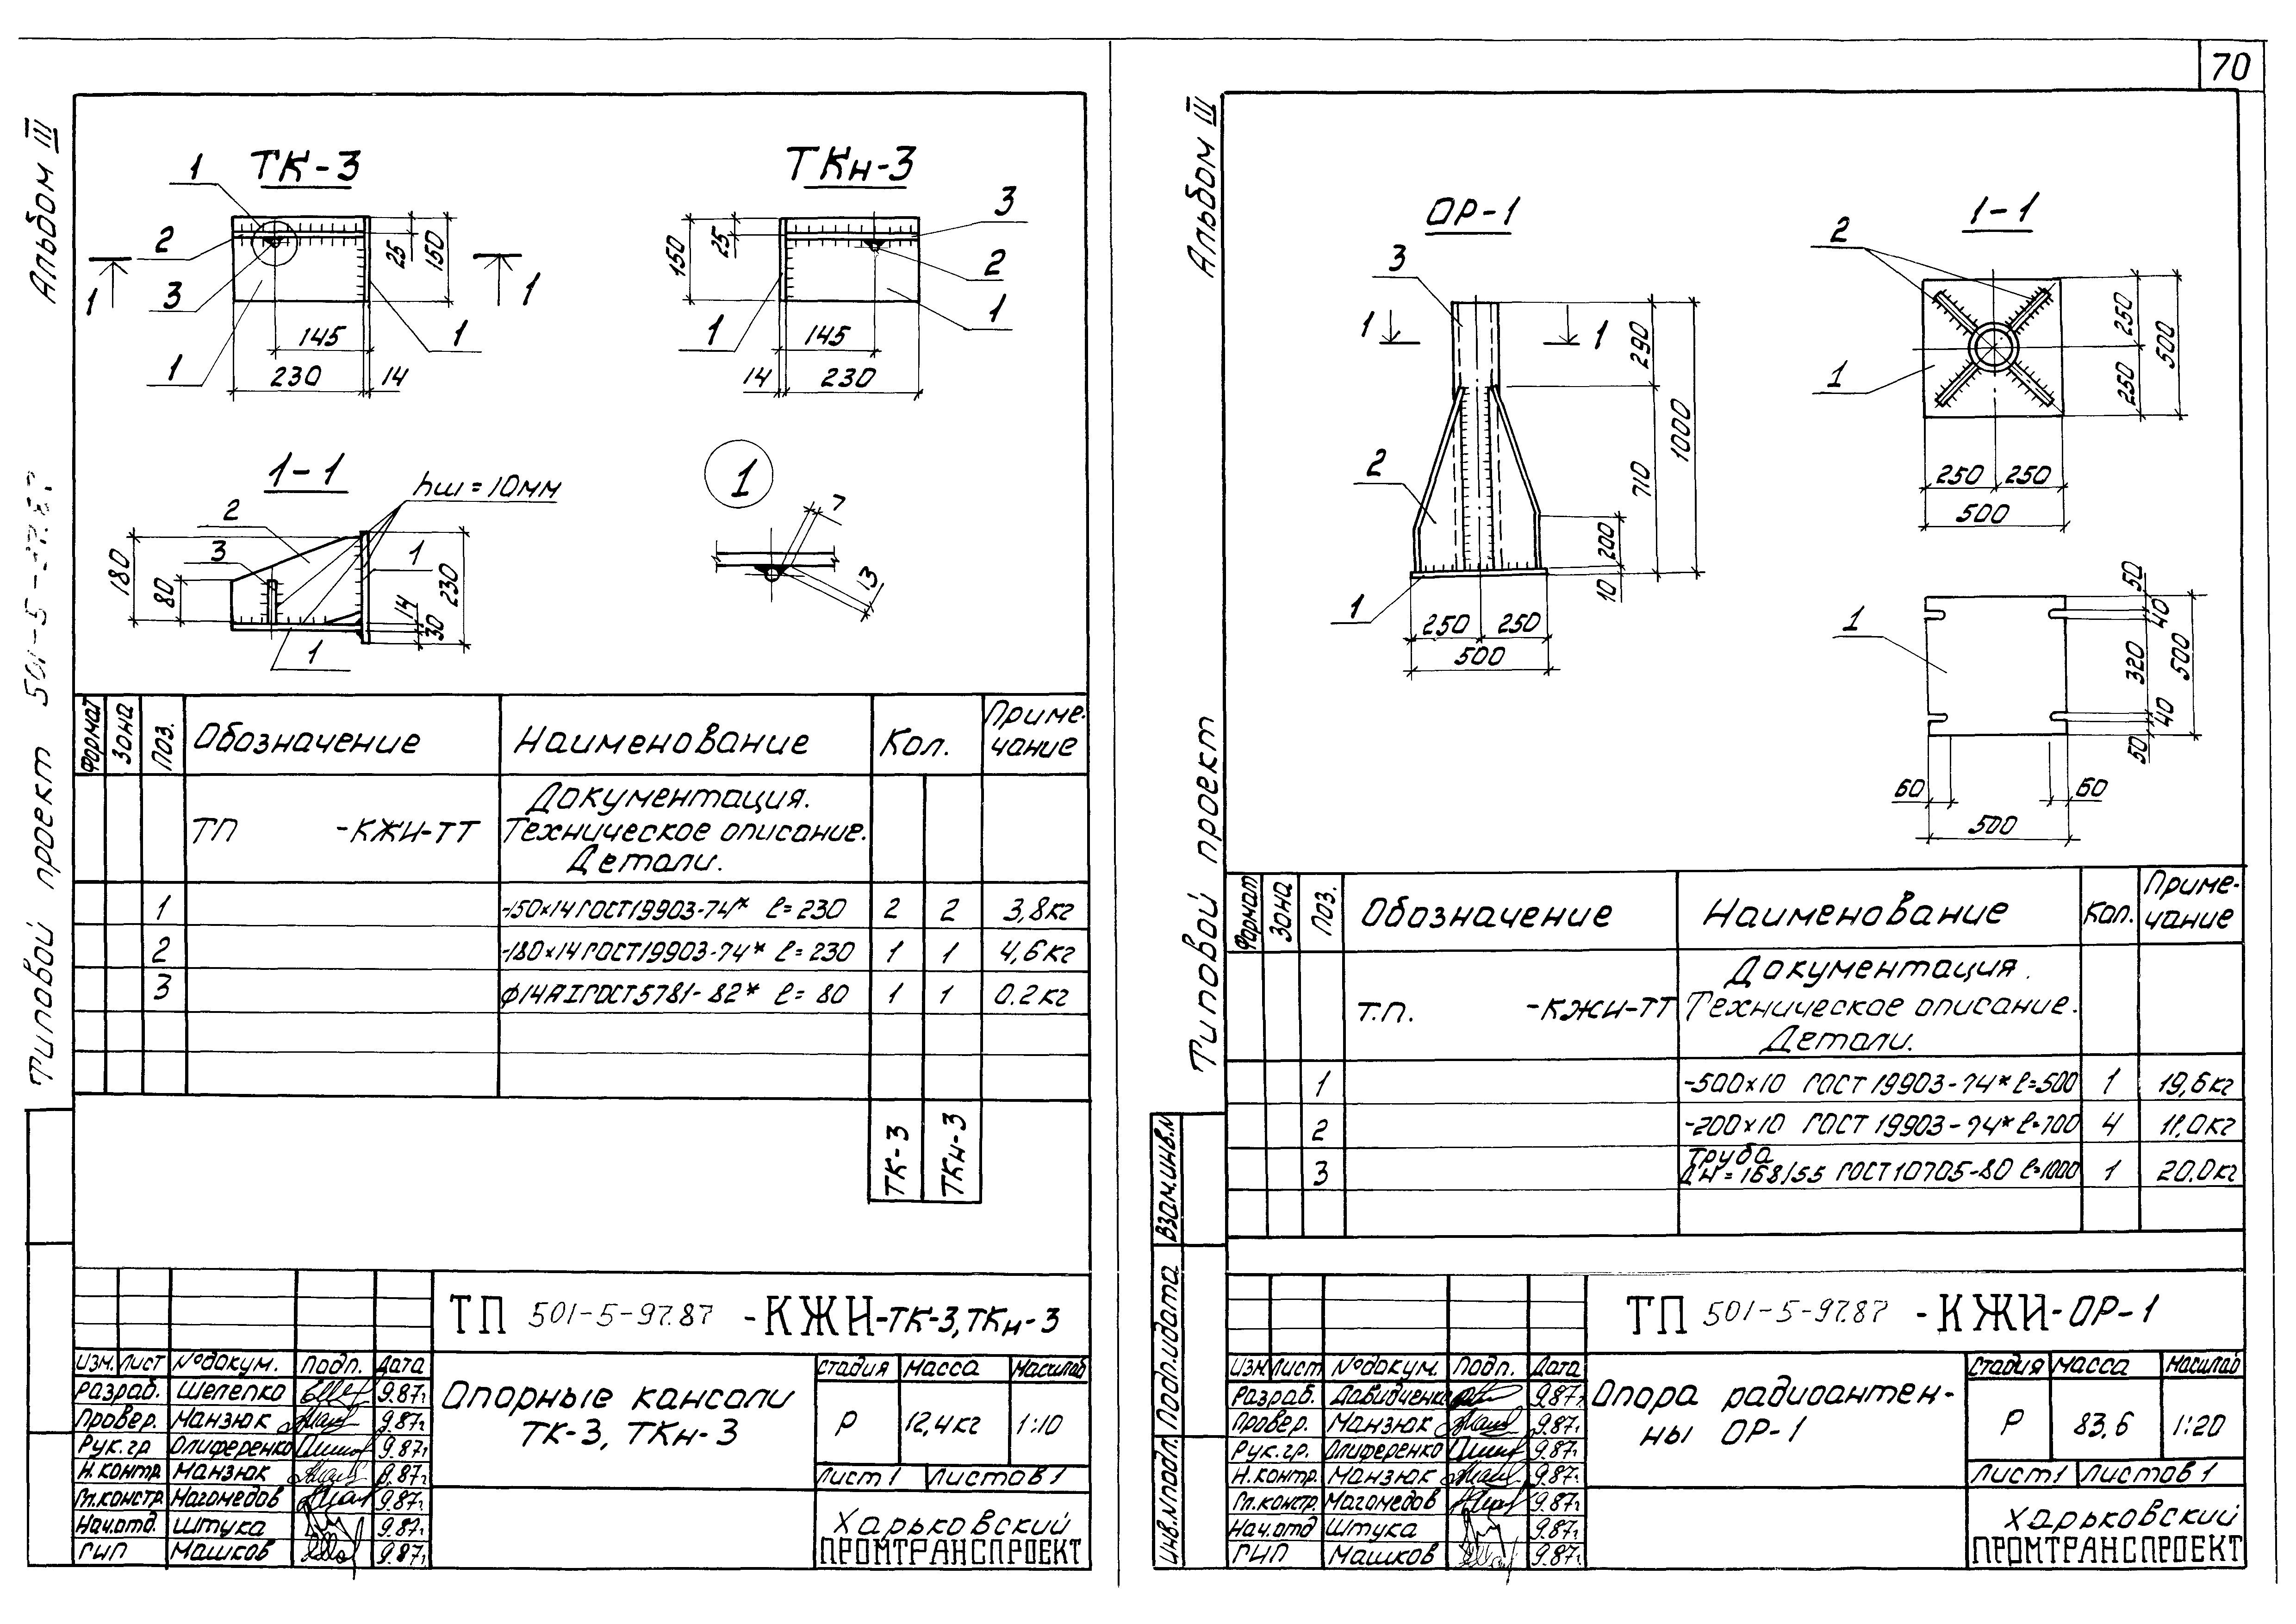 70
Альбом III
Типовой проект
ТК-3
1
2
3
1
1
1
1
25
150
145
230
14
ТКн-3
3
2
1
1
150
25
145
14
230
1-1
hш=10мм
2
3
1
1
180
80
14
30
230
1
7
13
Формат
Зона
Поз.
Обозначение
Наименование
Кол.
Приме-
чание
Документация.
ТП -КЖИ-ТТ Техническое описание.
Детали.
1 -150×14 ГОСТ19903-74* ℓ=230 2 2 3,8кг
2 -180×14 ГОСТ19903-74* ℓ=230 1 1 4,6кг
3 ф14АI ГОСТ5781-82* ℓ=80 1 1 0.2кг
ТК-3
ТКн-3
ТП 501-5-97.87 -КЖИ-ТК-3,ТКн-3
Изм. Лист №докум. Подп. Дата
Разраб. Шелепко 9.87г.
Провер. Манзюк 9.87г.
Рук.гр. Олиференко 9.87г.
Н.контр. Манзюк 9.87г.
Гл.констр. Магомедов 9.87г.
Нач.отд. Штука 9.87г.
ГИП Машков 9.87г.
Опорные консоли
ТК-3, ТКн-3
Стадия Масса Масштаб
Р 12,4кг 1:10
Лист 1 Листов 1
Харьковский
ПРОМТРАНСПРОЕКТ
Альбом III
Типовой проект
ОР-1
3
1
1
2
1
290
1000
710
200
10
250
250
500
1-1
2
1
250
250
500
250
250
500
1
50
40
320
500
40
50
60
60
500
Формат
Зона
Поз.
Обозначение
Наименование
Кол.
Приме-
чание
Документация.
Т.П. -КЖИ-ТТ Техническое описание.
Детали.
1 -500×10 ГОСТ 19903-74* ℓ=500 1 19,6кг
2 -200×10 ГОСТ 19903-74* ℓ=700 4 11.0кг
Труба
3 Дн=168/55 ГОСТ10705-80 ℓ=1000 1 20.0кг
Взам.инв.№
Подп.и дата
Инв.№подл.
ТП 501-5-97.87 -КЖИ-ОР-1
Изм Лист №докум. Подп. Дата
Разраб. Давидченко 9.87г.
Провер. Манзюк 9.87г.
Рук.гр. Олиференко 9.87г.
Н.контр. Манзюк 9.87г.
Гл.констр. Магомедов 9.87г.
Нач.отд Штука 9.87г.
ГИП Машков 9.87г.
Опора радиоантен-
ны ОР-1
Стадия Масса Масштаб
Р 83,6 1:20
Лист 1 Листов 1
Харьковский
ПРОМТРАНСПРОЕКТ